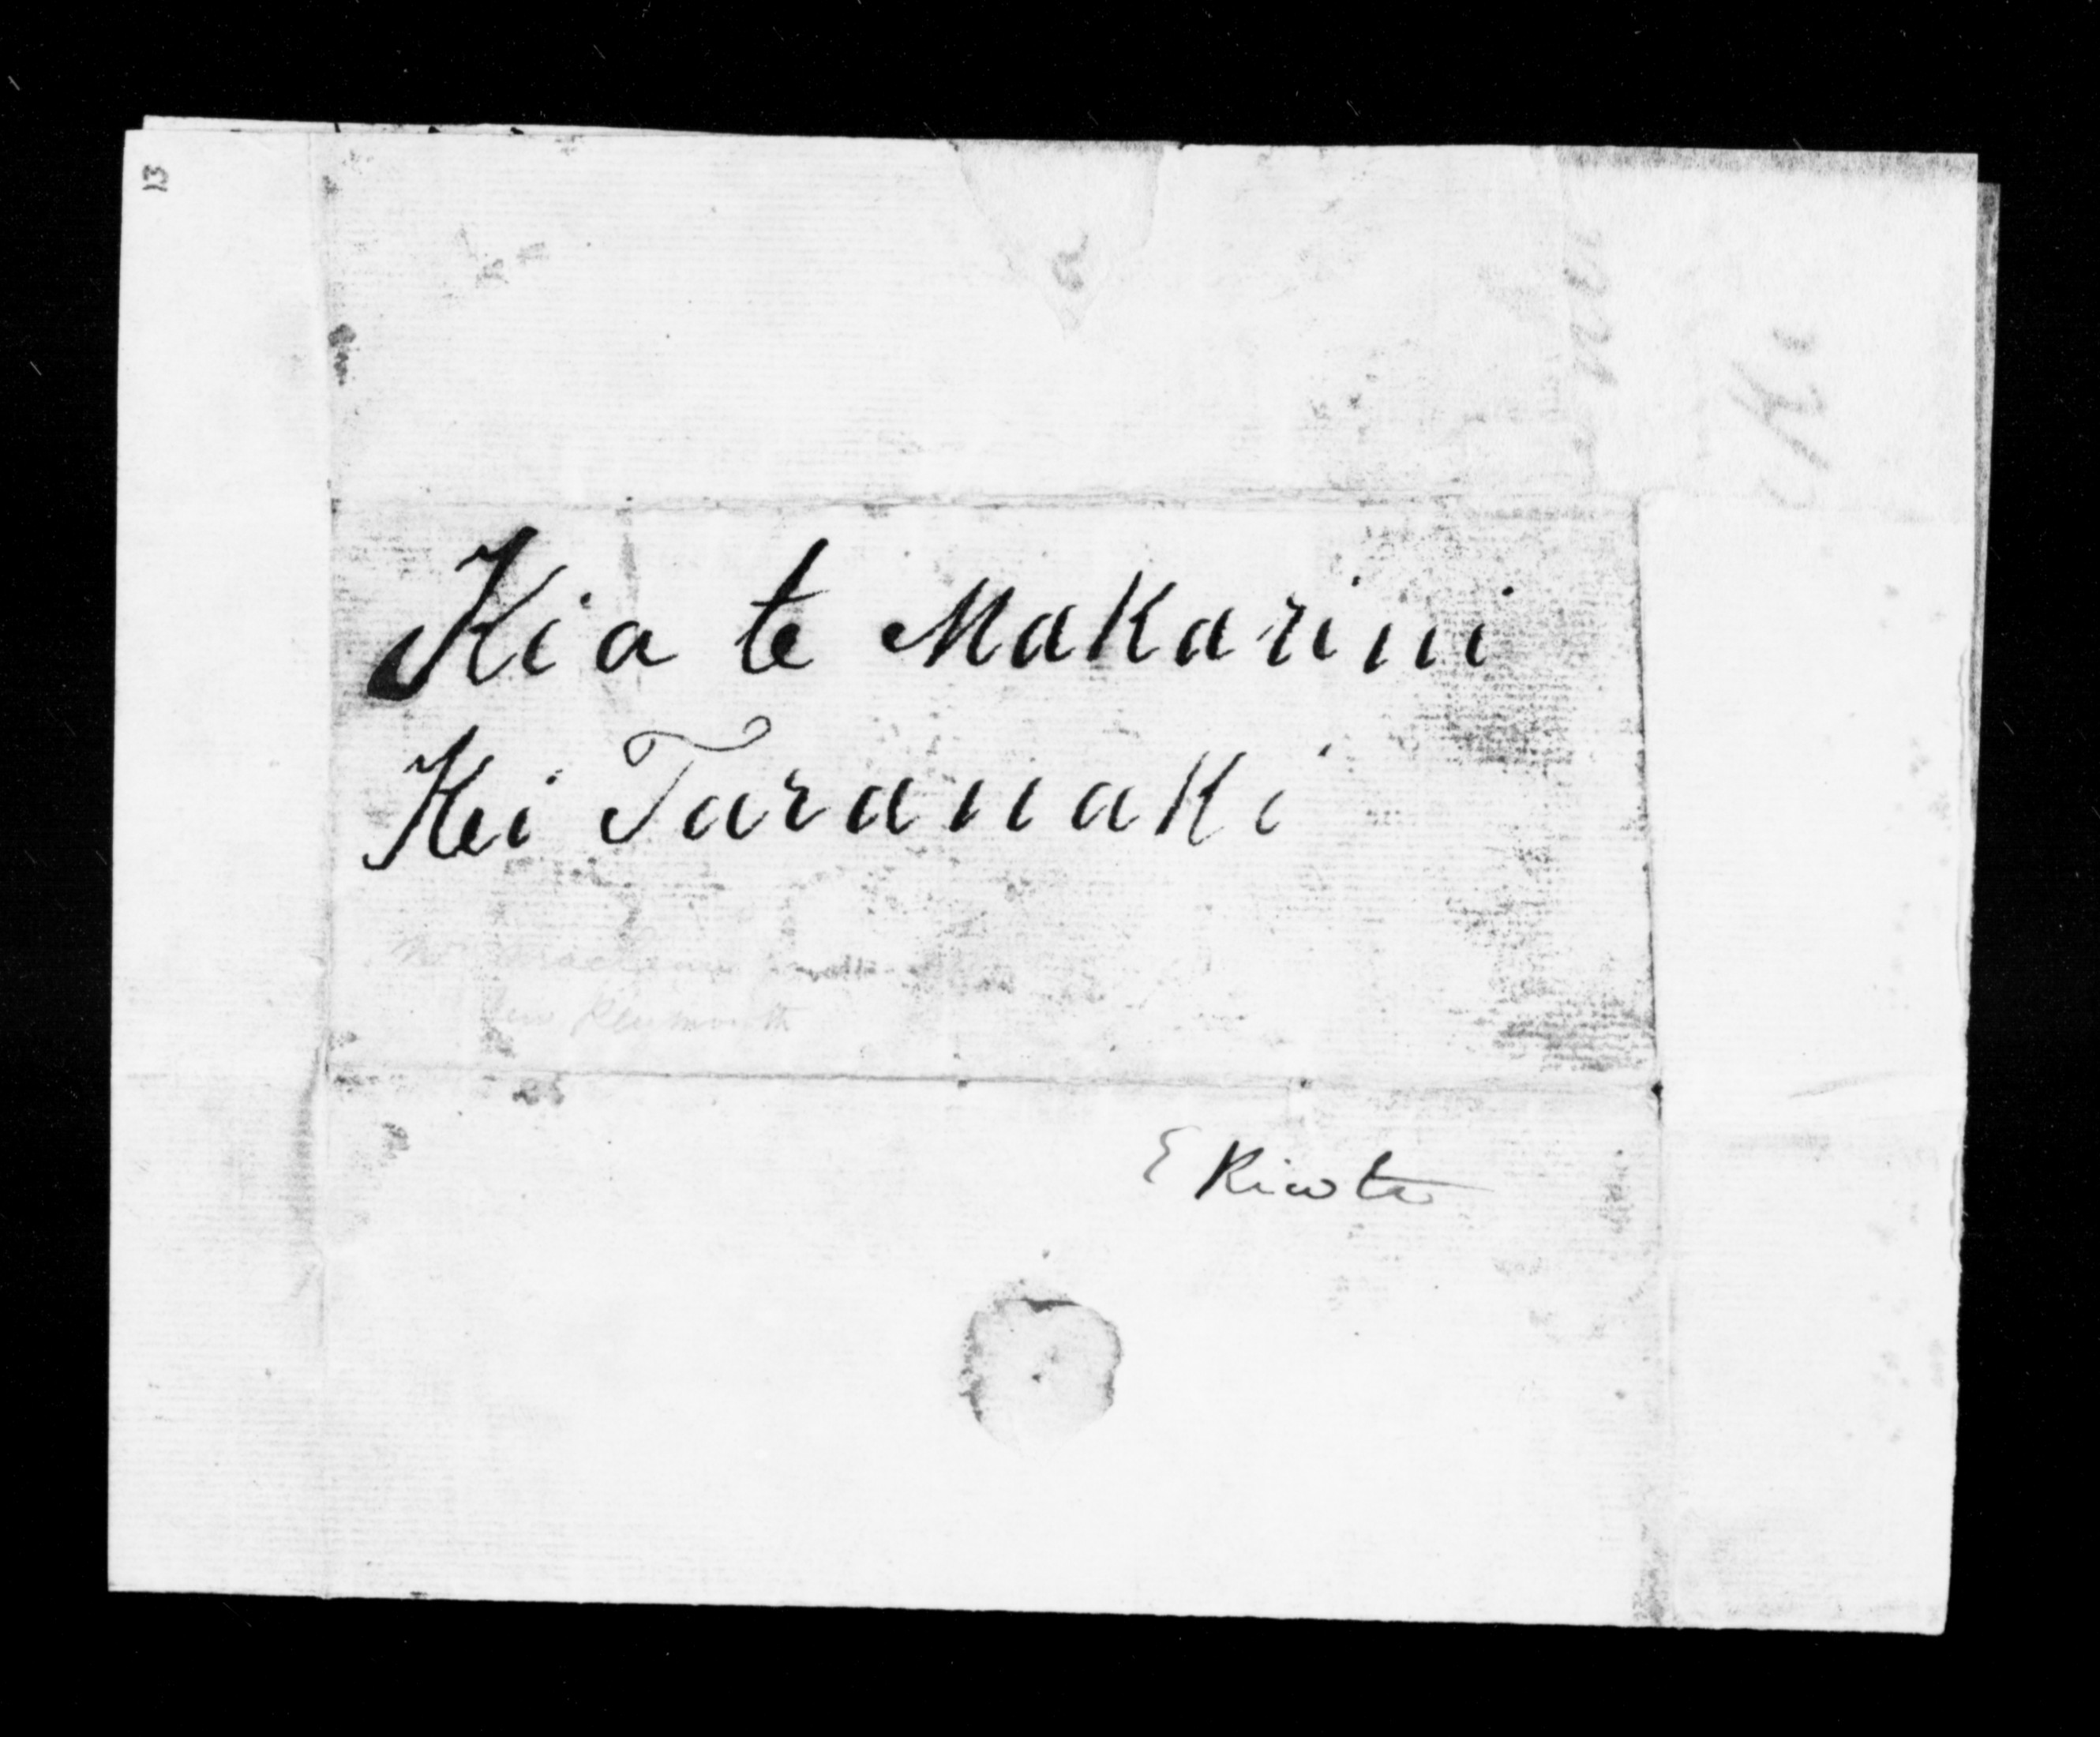 13
Kia te Makarini
Kei Taranaki
New Plymouth
E Kiwta